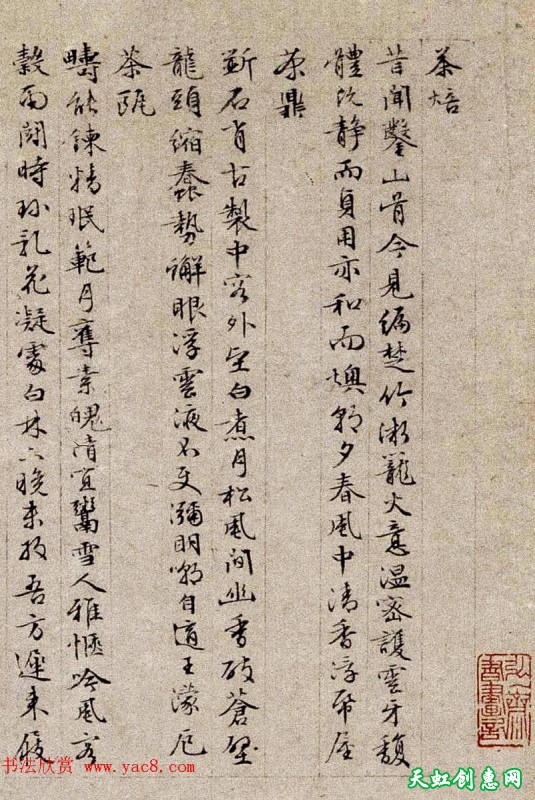 茶焙
昔聞鑿山骨今見編楚竹微籠火意溫密護雲牙馥
體既靜而貞用亦和而燠朝夕春風中清香浮帋屋
茶鼎
斲石肖古製中容外堅白煮月松風間幽香破蒼壁
龍頭縮蠢勢蟹眼浮雲液不使彌明嘲自適王濛厄
茶甌
疇能鍊精珉範月奪素魄清宜鬻雪人雅愜吟風客
穀雨鬥時珍乳花凝處白林下晚未收吾方遲來屐
书法欣赏 www.yac8.com
天虹创惠网